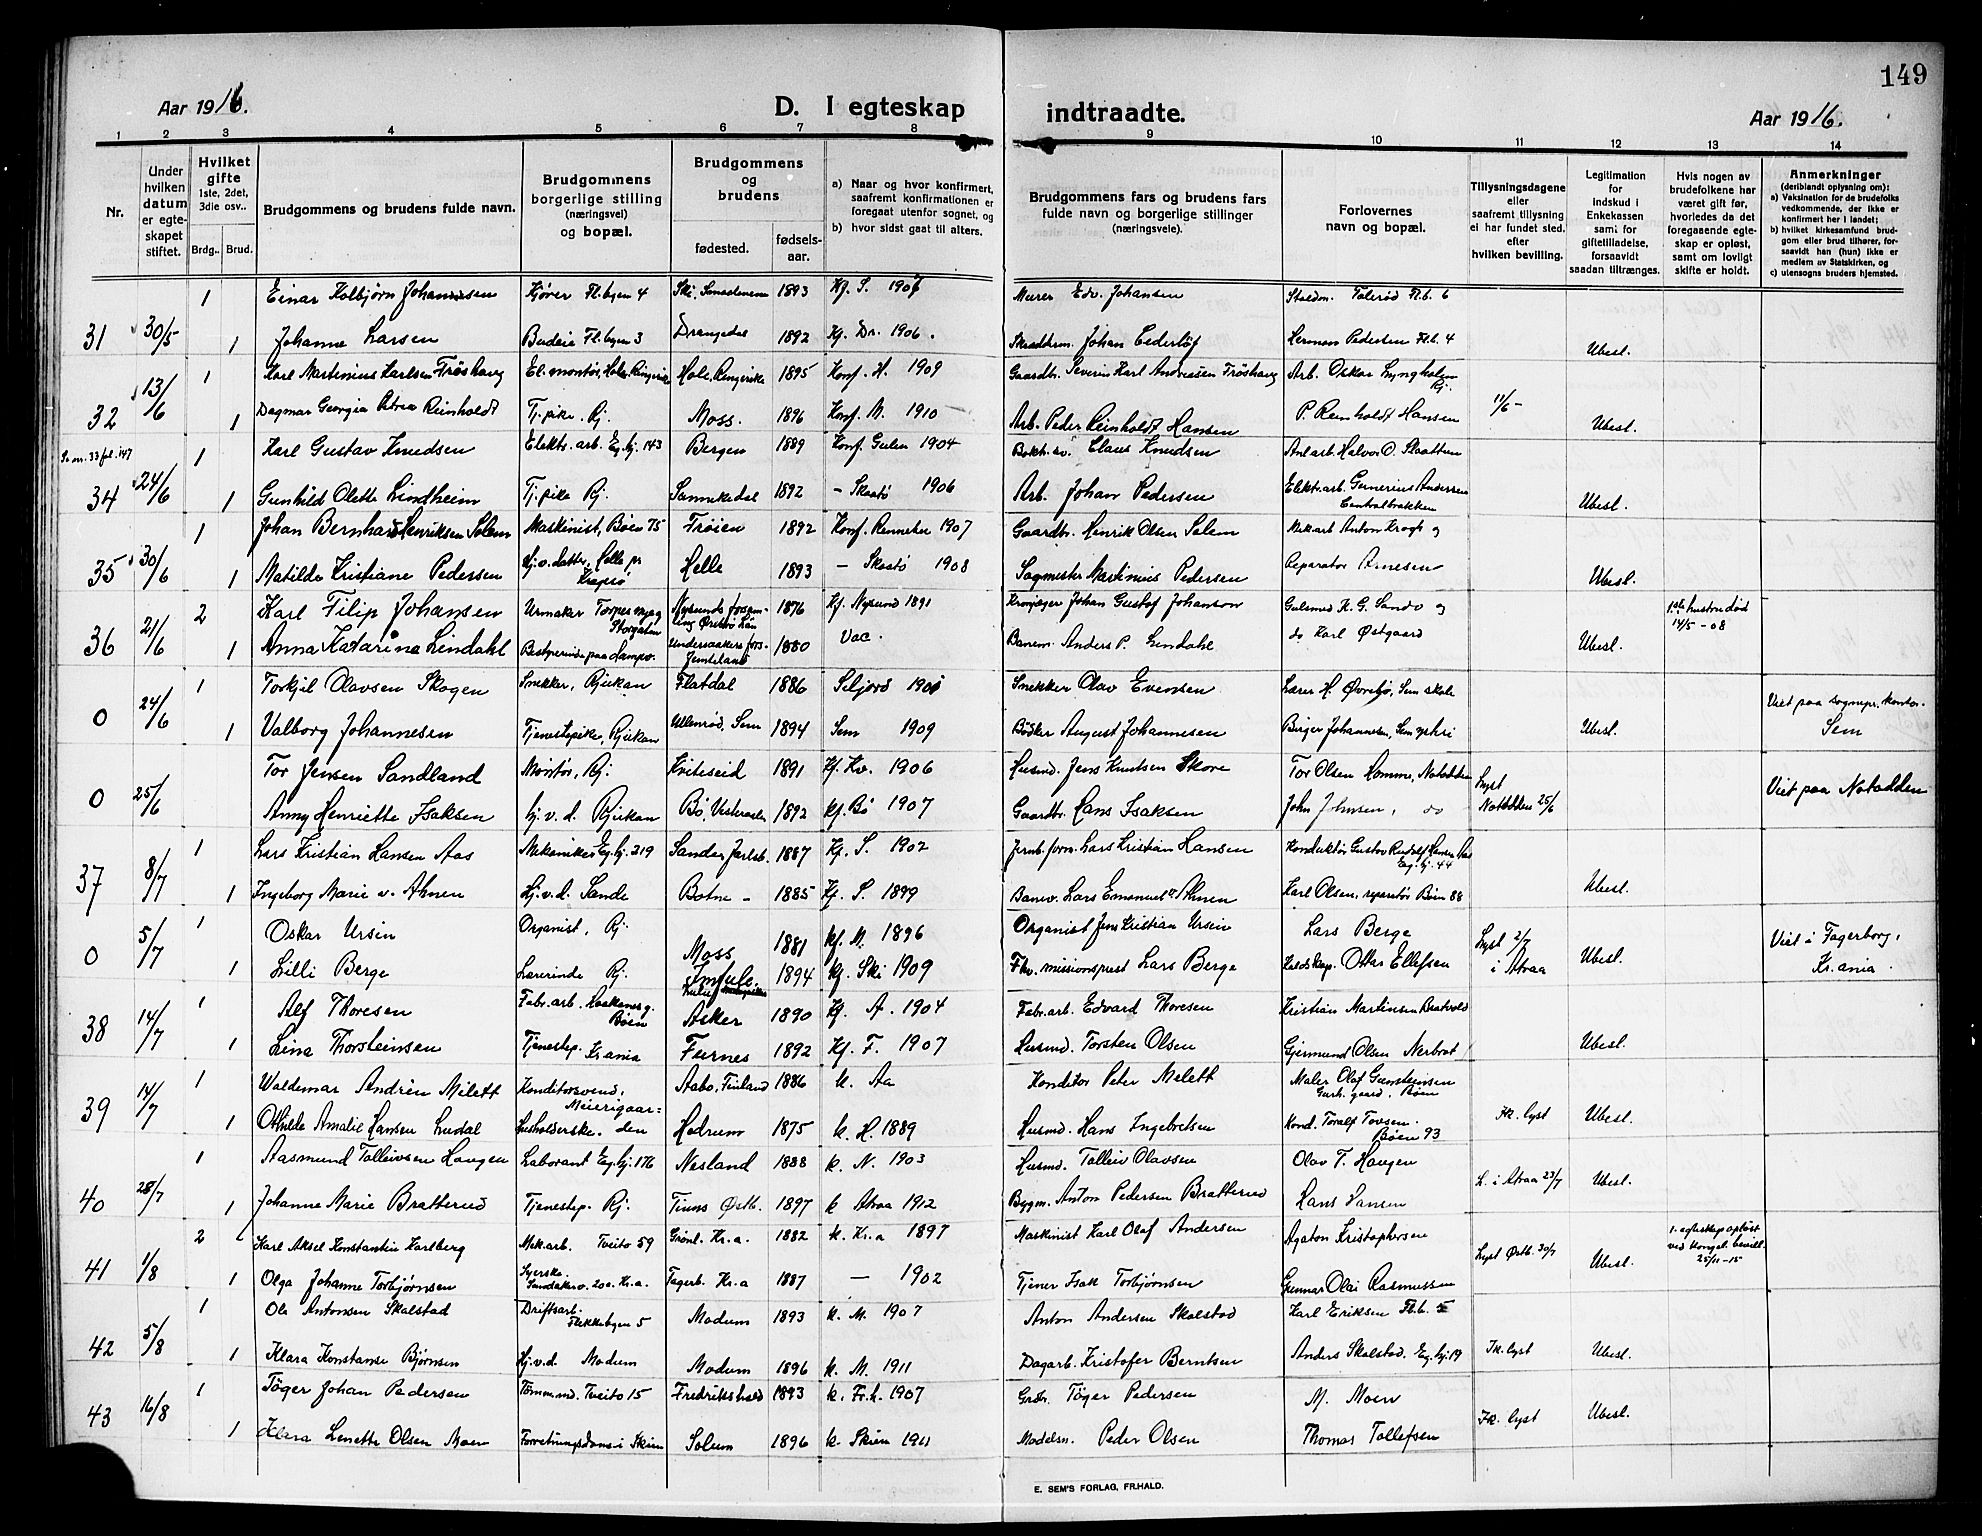 149
Aar 1916.
D. I egteskap indtraadte.
Aar 1916.
1 2 3 4 5 6 7 8 9 10 11 12 13 14
Nr.
Under hvilken datum er egteskapet stiftet.
Hvilket gifte 1ste, 2det, 3die osv..
Brdg.. Brud.
Brudgommens og brudens fulde navn.
Brudgommens borgerlige stilling (næringsvei) og bopæl.
Brudgommens og brudens
fødested. fødselsaar.
a) Naar og hvor konfirmert, saafremt konfirmationen er foregaat utenfor sognet, og
b) hvor sidst gaat til alters.
Brudgommens fars og brudens fars fulde navn og borgerlige stillinger (næringsveie).
Forlovernes navn og bopæl.
Tillysningsdagene eller saafremt tillysning ei har fundet sted, efter hvilken bevilling.
Legitimation for indskud i Enkekassen samt for giftetilladelse, forsaavidt saadan tiltrænges.
Hvis nogen av brudefolkene har været gift før, hvorledes da det foregaaende egteskap er opløst, samt om lovligt skifte er holdt.
Anmerkninger (deriblandt oplysning om):
a) Vaksination for de brudefolks vedkommende, der ikke er konfirmert her i landet;
b) hvilket kirkesamfund brudgom eller brud tilhører, forsaavidt han (hun) ikke er medlem av Statskirken, og
c) utensogns bruders hjemsted.
1 Einar Kolbjørn Johannesen Kjører Fl.byen 4 Ski, 1893 Kf. S. 1907 Murer Edv. Johansen Fl.b. 6
31 30/5 1 Johanne Larsen Budeie Fl.byen 3 Drangedal 1892 Kf. Dr. 1906. Skrædderm. Johan Cederløf Herman Pedersen Fl.b. 4 Ubesl.
1 Karl Martinius Karlsen Frøshaug El.montør, Hole, Ringerike Hole, Ringerike 1895 Konf. H. 1909 Gaardbr. Severin Karl Andreassen Frøshaug Arb. Oskar Lyngholm Rj.
32 13/6 1 Dagmar Georgia Petrea Reinholdt Tj.pike, Rj. Moss. 1896 Konf. M. 1910 Arb. Peder Reinholdt Hansen P. Reinholdt Hansen 11/6 - Ubesl.
Se nr. 33 fol. 147 1 Karl Gustav Knudsen Elektr. arb. Eg.bj. 143 Bergen 1889 Konf. Gulen 1904 Claus Knudsen Anl.arb. Halvor O. Skaatten
34 24/6 1 Gunhild Olette Lindheim Tj.pike Rj. Sannikedal 1892 - Skaatø 1906 Arb. Johan Pedersen Elektr.arb. Gunerius Andersen Centralbrakken Ubesl.
1 Johan Bernhard Henriksen Solem Maskinist, Bøen 75 Frøien 1892 Konf. Rennebu 1907 Gaardbr. Henrik Olsen Solem Mek.arb Anton Krogh og
35 30/6 1 Matilde Kristiane Pedersen Hj.v. datter, Helle pr Kragerø Helle 1893 - Skaatø 1908 Sagmester Martinius Pedersen Reparatør Arnesen Ubesl.
2 Karl Filip Johansen Urmaker Storgaten Nysunds forsamling Ørebro Län 1876 Kf. Nysund 1891 Kronjæger Johan Gustaf Johanson Gulsmed K. G. Sando og 1ste hustru død 14/5 - 08
36 21/6 1 Anna Katarina Lindahl Bestyrerinde paa Undersaakers fors. Jemtland 1880 Vac. Banem. Anders P. Lindahl do Karl Østgaard Ubesl.
1 Torkjil Olavsen Skogen Snekker, Rjukan Flatdal 1886 Seljord 1901 Snekker Olav Evensen Lærer H. Øvrebø, Sem skole Viet paa sognepr. kontor.
0 24/6 1 Valborg Johannesen Tjenestepike, Rjukan Ullenrød, Sem 1894 Sem 1909 Bødker August Johannesen Birger Johannesen, Sem Ubesl. Sem
Tor Jensen Sandland Montør, Rj. Kviteseid 1891 Kf. Kv. 1906 Husmd. Jens Knutsen Skore Tor Olsen Homme, Notodden Lyst Viet paa Notodden
0 25/6 Anny Henriette Isaksen hj.v.d. Rjukan Bø, Vesteraalen 1892 kf. Bø 1907 Gaardbr. Hans Isaksen John Johnsen, do Notodden 25/6
1 Lars Kristian Hansen Aas Mekaniker Eg.bj. 219 Sande, Jarlsb. 1887 Kf. S. 1902 Jernb.form. Lars Kristian Hansen Konduktør Gustav Rudolf Hansen Aas Eg.bj. 44
37 8/7 1 Ingeborg Marie v. Ahnen Hj.v.d. Sande Botne - 1885 Kf. S. 1899 Banev. Lars Emanuel v. Ahnen Karl Olsen, reparatør Bøen 88 Ubesl.
1 Oskar Ursin Organist, Rj. Moss 1881 kf. M. 1896 Organist Jens Kristian Ursin Lars Berge Lyst 2/7 Viet i Fagerborg,
0 5/7 1 Lilli Berge Lærerinde Rj. 1894 kf. Ski 1909 Fhv. missionsprest Lars Berge Ottar Ellefsen i Atraa Ubesl. Kr.ania.
1 Alf Thoresen Fabr.arb. Bøen Asker 1890 Kf. A. 1904 Fabr.arb. Edvard Thoresen Kristian Martinsen Bratvold
38 14/7 1 Lina Thorsteinsen Tjenestep. Kr.ania Furnes 1892 Kf. F. 1907 Husmd. Torsten Olsen Gjermund Olsen Nerbrot Ubesl.
1 Waldemar Andrén Milett Konditorsvend, Meierigaarden Aabo, Finland 1886 k. Aa Konditor Peter Melett Maler Olaf Gunsteinsen gaard, Bøen
39 14/7 1 Othilde Amalie Hansen Ludal husholderske. Hedrum 1875 k. H. 1889 Husmd. Hans Ingebretsen Kond. Toralf Tovsen. Bøen 93 Fk. lyst Ubesl.
1 Aasmund Tolleivsen Haugen Laborant Eg.bj. 176 Nesland 1888 k. N. 1903 Husmd. Tolleiv Olavsen Olav T. Haugen
40 28/7 1 Johanne Marie Bratterud Tjenestep. Rj. Tinns Østb. 1897 k Atraa 1912 Bygm. Anton Pedersen Bratterud Hans Hansen L. i Atraa 23/7 Ubesl.
2 Karl Aksel Konstantin Karlberg Mek.arb. Tveito 59 Grønl. Kr.a. 1882 k. Kr.a 1897 Maskinist Karl Olaf Andersen Agaton Kristophersen 1. egteskap opløst ved Kongel. bevill. 25/11-15
41 1/8 1 Olga Johanne Torbjørnsen Syerske. Sandakerv. 20a. Kr.a. Fagerb. Kr.a 1887 - 1902 Tjener Isak Torbjørnsen Gunnar Olai Rasmussen Lyst Østb. 30/7 Ubesl.
1 Ole Antonsen Skalstad Driftsarb. Flekkebyen 5 Modum 1893 k. M. 1907 Anton Andersen Skalstad Karl Eriksen Fl.b. 5
42 5/8 1 Klara Konstanse Bjørnsen Hj.v.d. Modum Modum 1896 k. M. 1911 Dagarb. Kristofer Berntsen Anders Skalstad. Eg.bj. 19 Fk. lyst Ubesl.
1 Tøger Johan Pedersen Tømmermd. Tveito 15 Fredrikshald 1893 k. Fr.h. 1907 Grbr. Tøger Pedersen M. Moen
43 16/8 1 Klara Lenette Olsen Moen Forretningsdame i Skien Solum 1896 k. Skien 1911 Modelsn. Peder Olsen Thomas Tollefsen Fk. lyst Ubesl.
E. SEM'S FORLAG, FR.HALD.